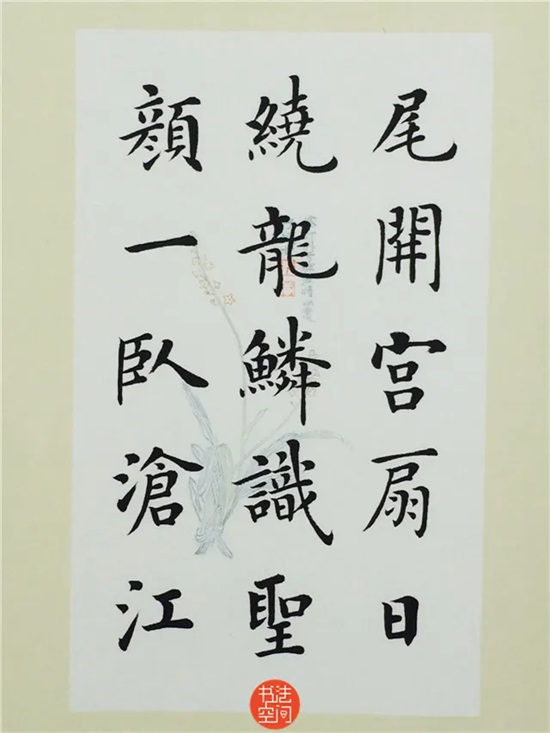 尾開宫扇日
繞龍鱗識聖
顔一臥滄江
书法
空间